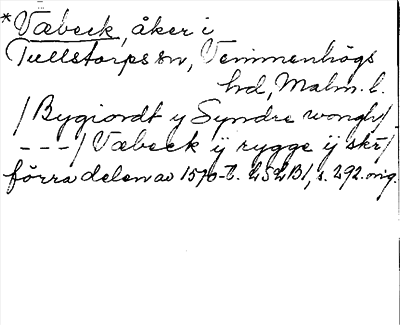 *Væbeck, åker i
Tullstorps sn, Vemmenhögs
hd, Malm. l.
/Bygiordt y Syndre wongh/
---/Væbeck ÿ rygge ÿ skr/
förra delen av 1570-t. LSLB1, s. 292. orig.